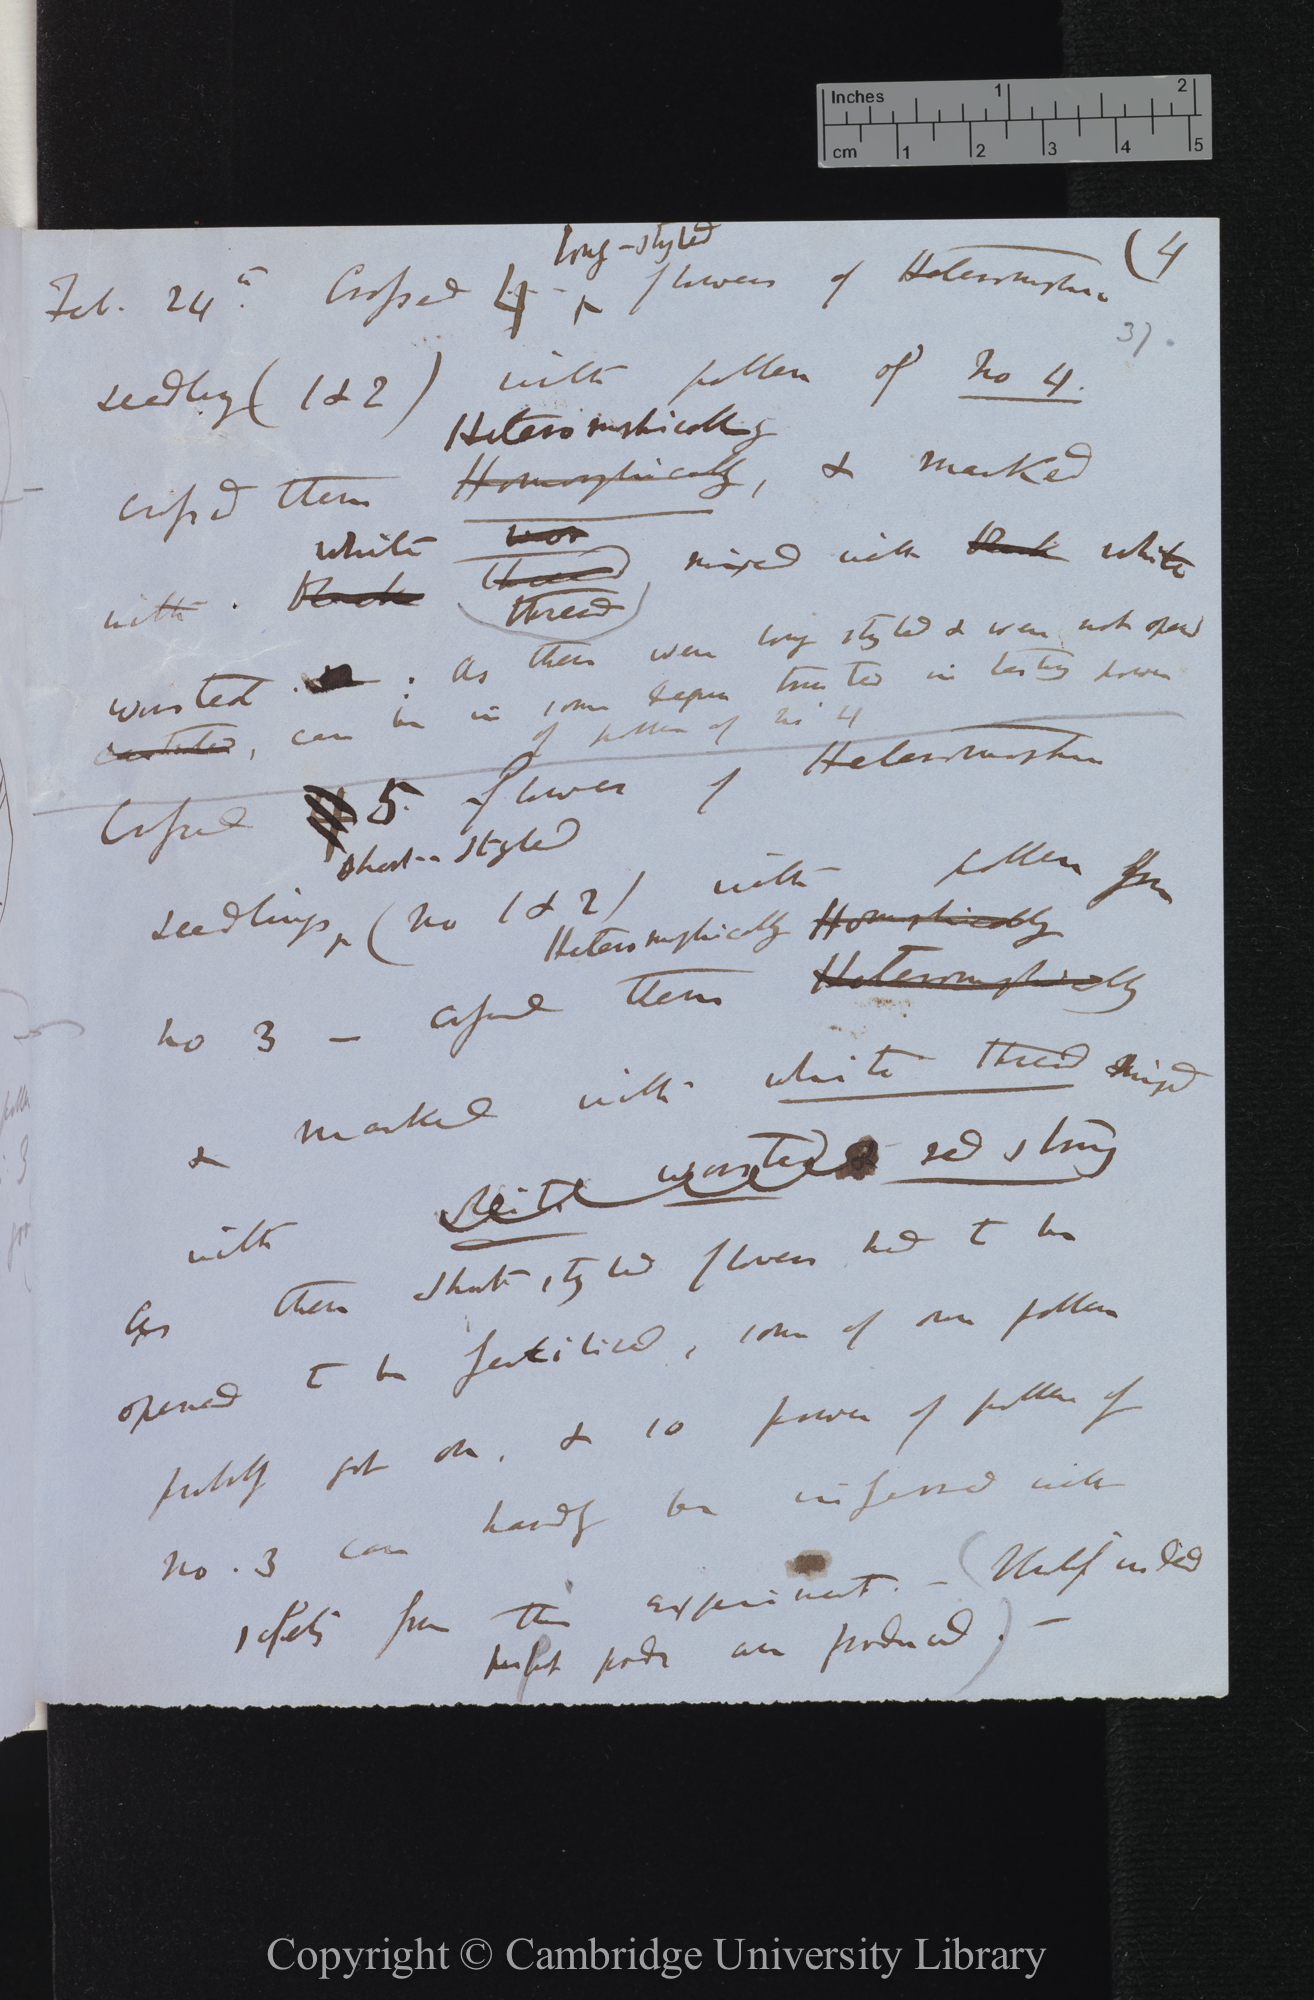 Inches 1 2
cm 1 2 3 4 5
(4
long-styled
Feb. 24th. Crossed 4 ^ flowers of Heteromorphic
37.
seedling (1 & 2) with pollen of No 4.
Heteromorphically
crossed them Homomorphically, & marked
white wor
with Black thread mixed with black white
thread
worsted. As these were long styled & were not opened
can be in some degree trusted in testing power
of pollen of No 4
Crossed 5 flowers of Heteromorphic
short-styled
seedlings ^ (No 1 & 2) with pollen from
Heteromorphically Homorphically
No 3 — crossed them Heteromorphically
& marked with white thread mixed
with white worsted & red string
As these short styled flowers had to be
opened to be fertilised, some of own pollen
probably got on, & so power of pollen of
No. 3 can hardly be inferred with
safety from this experiment. — (Unless indeed
perfect pods are produced). —
Copyright © Cambridge University Library